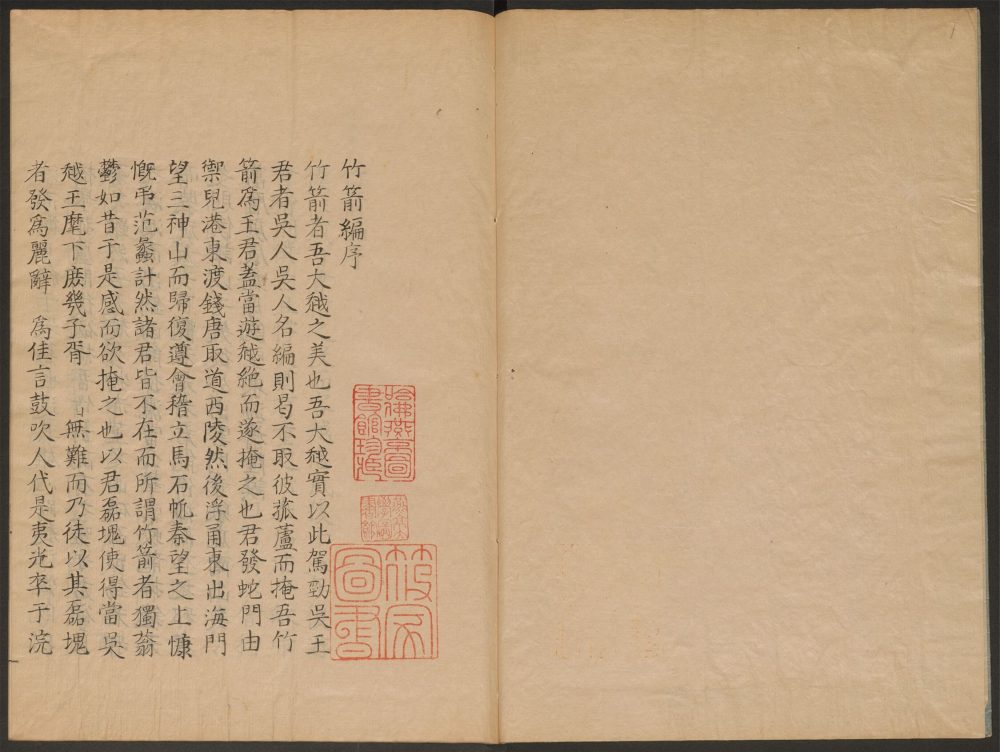 竹箭編序
竹箭者吾大越之美也吾大越實以此駕勁吳王
君者吳人吳人名編則曷不取彼菰蘆而掩吾竹
箭為王君蓋當遊越絕而遂掩之也君發蛇門由
禦兒港東渡錢唐取道西陵然後浮甬東出海門
望三神山而歸復遵會稽立馬石帆秦望之上慷
慨弔范蠡計然諸君皆不在而所謂竹箭者獨蓊
鬱如昔于是感而欲掩之也以君磊塊使得當吳
越王麾下庶幾子胥無難而乃徒以其磊塊
者發為麗辭 為佳言鼓吹人代是夷光卒于浣
哈佛燕京圖書館珍藏